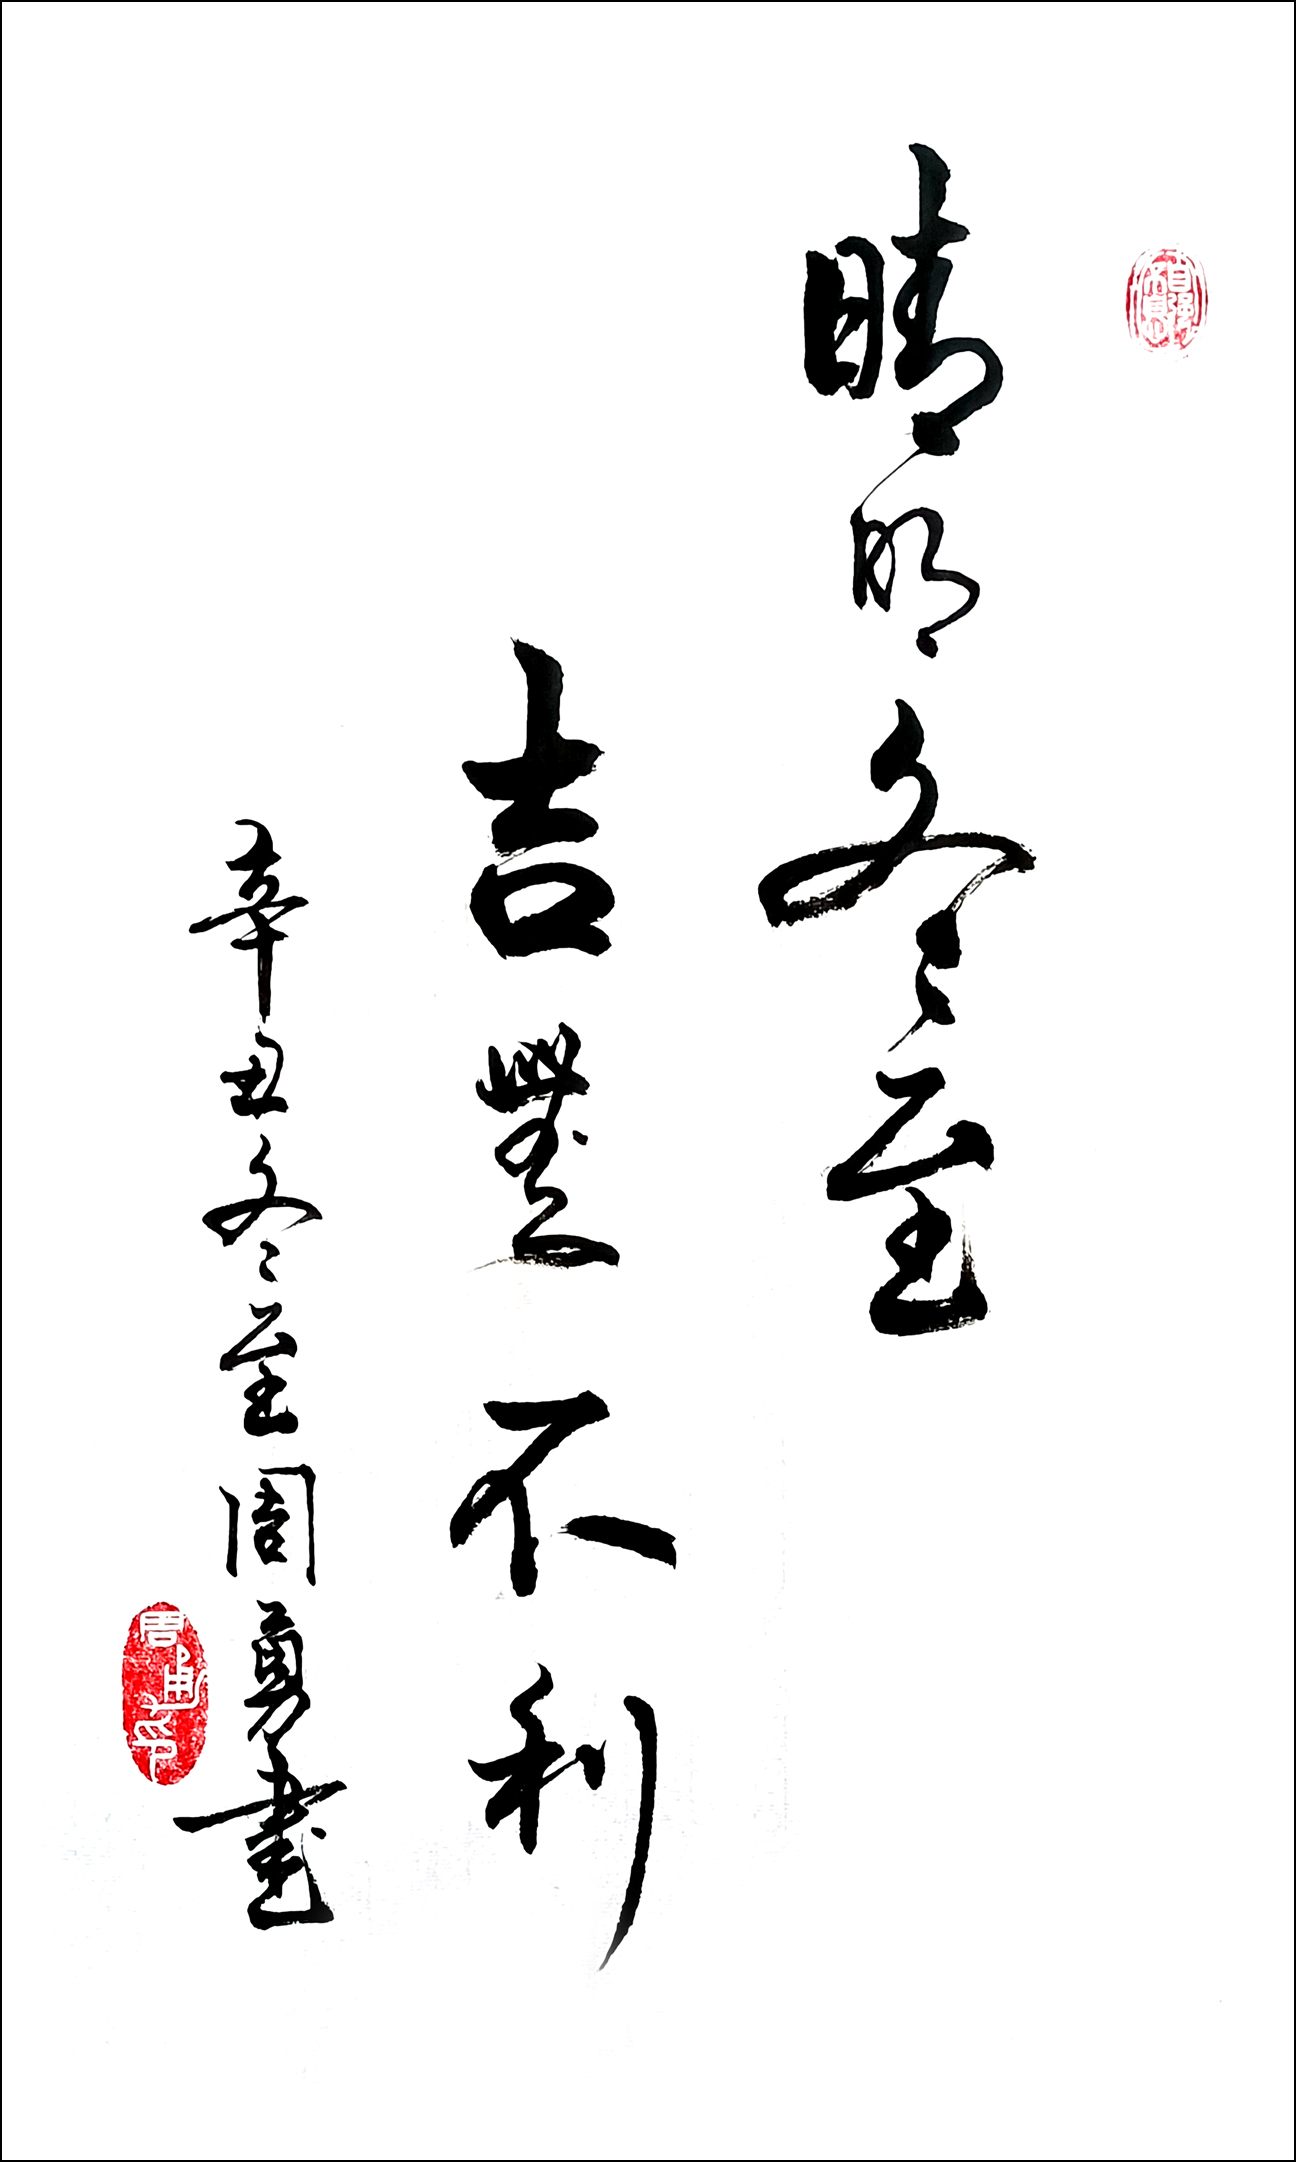 晴明冬至
吉無不利
辛丑冬至周勇書
周勇印